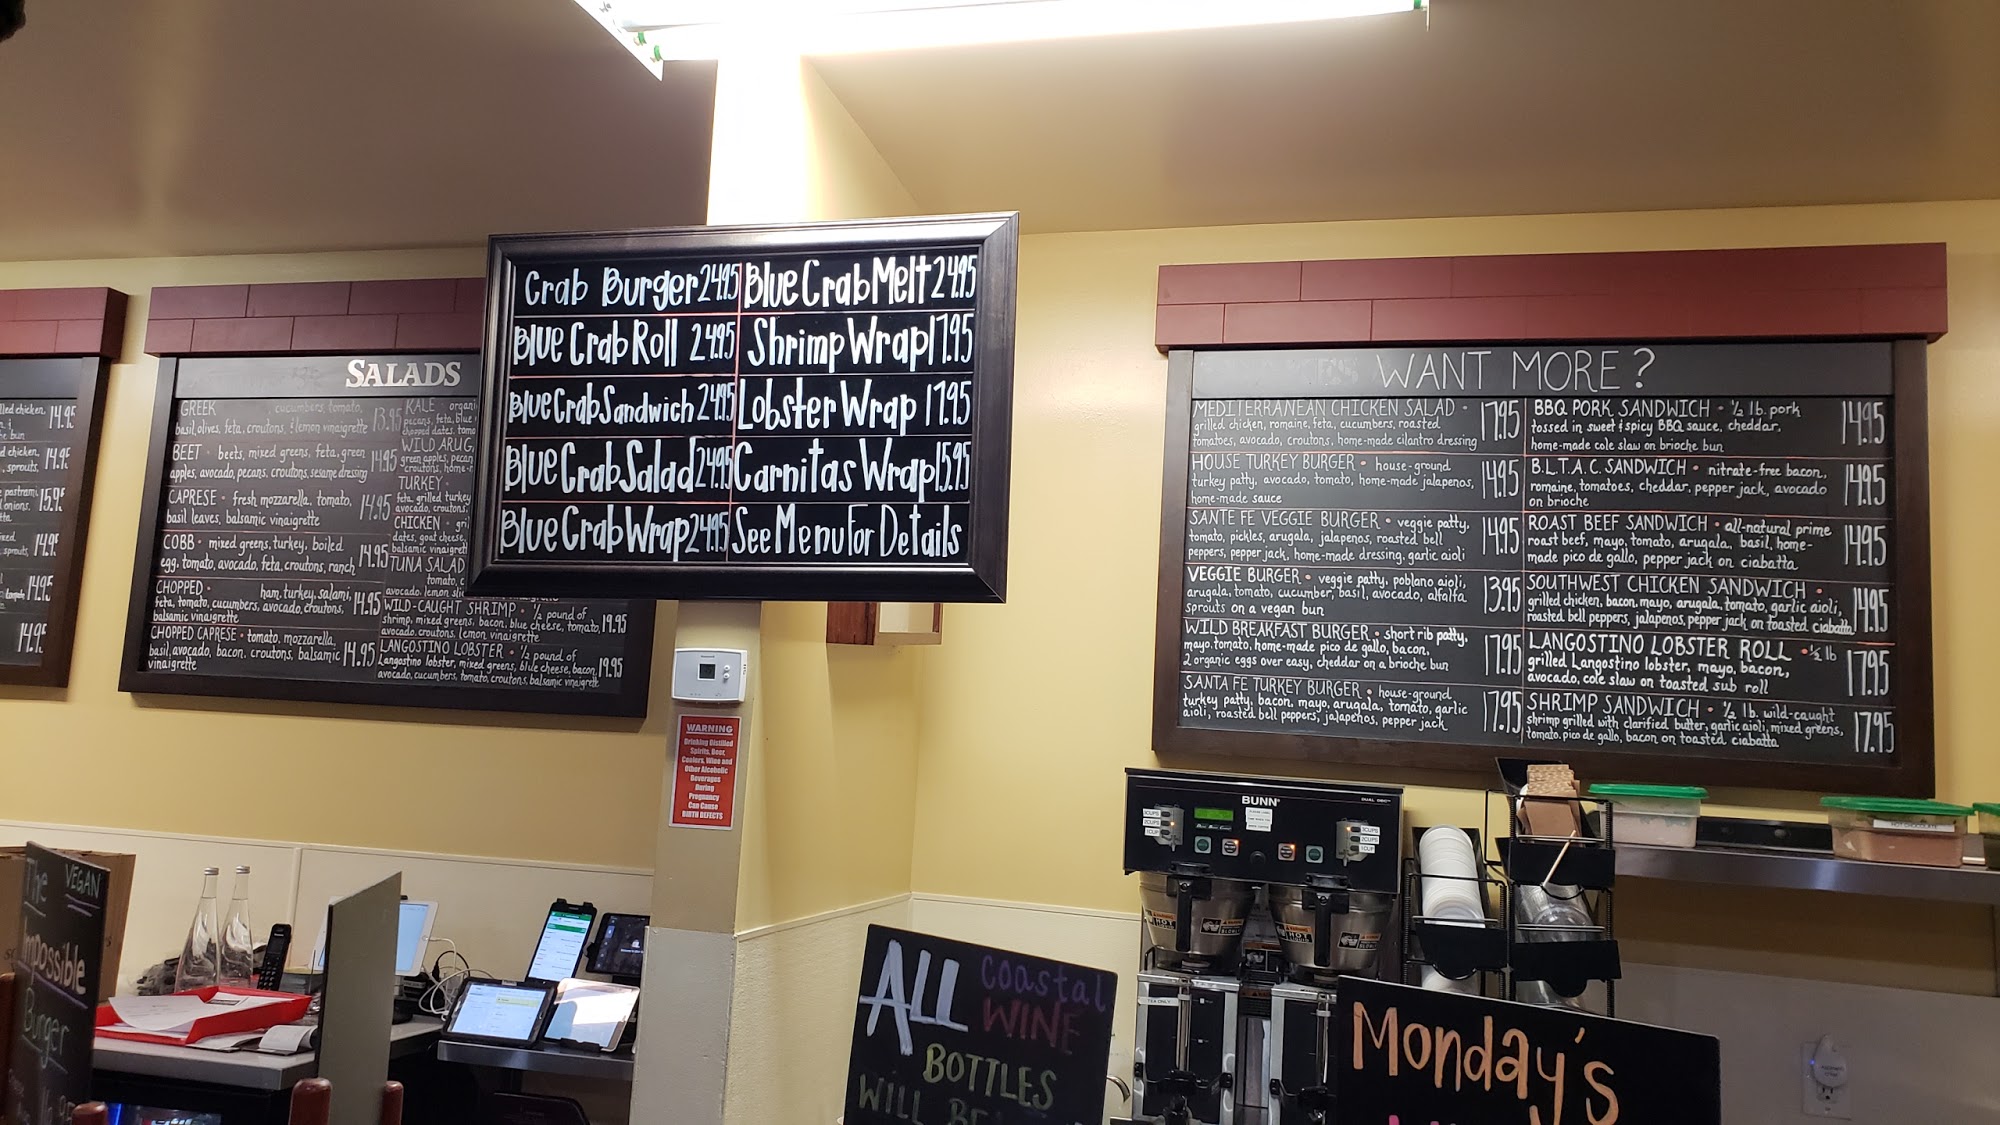 lled chicken, 14.95
he bun
d chicken,
, sprouts, 14.95
pastrami,
d onions. 15.95
sprouts, 14.95
14.95
14.95
SALADS
GREEK cucumbers, tomato,
basil, olives, feta, croutons, & lemon vinaigrette 13.95
BEET • beets, mixed greens, feta, green
apples, avocado, pecans, croutons, sesame dressing 14.95
CAPRESE • fresh mozzarella, tomato,
basil leaves, balsamic vinaigrette 14.95
COBB • mixed greens, turkey, boiled
egg, tomato, avocado, feta, croutons, ranch 14.95
CHOPPED • ham, turkey, salami,
feta, tomato, cucumbers, avocado, croutons,
balsamic vinaigrette 14.95
CHOPPED CAPRESE • tomato, mozzarella,
basil, avocado, bacon, croutons, balsamic
vinaigrette 14.95
KALE • organi
pecans, feta, blue
chopped dates, toma
WILD ARUG
green apples, pecan
croutons, home-r
TURKEY •
feta, grilled turkey
avocado, croutons,
CHICKEN • gri
dates, goat cheese,
balsamic vinaigrett
TUNA SALAD
tomato, c
avocado, lemon sli
WILD-CAUGHT SHRIMP • ½ pound of
shrimp, mixed greens, bacon, blue cheese, tomato,
avocado, croutons, lemon vinaigrette 19.95
LANGOSTINO LOBSTER • ½ pound of
Langostino lobster, mixed greens, blue cheese, bacon,
avocado, cucumbers, tomato, croutons, balsamic vinaigrette 19.95
Crab Burger 24.95
Blue Crab Roll 24.95
Blue Crab Sandwich 24.95
Blue Crab Salad 24.95
Blue Crab Wrap 24.95
Blue Crab Melt 24.95
Shrimp Wrap 17.95
Lobster Wrap 17.95
Carnitas Wrap 15.95
See Menu For Details
WANT MORE?
MEDITERRANEAN CHICKEN SALAD •
grilled chicken, romaine, feta, cucumbers, roasted
tomatoes, avocado, croutons, home-made cilantro dressing 17.95
HOUSE TURKEY BURGER • house-ground
turkey patty, avocado, tomato, home-made jalapenos,
home-made sauce 14.95
SANTE FE VEGGIE BURGER • veggie patty,
tomato, pickles, arugula, jalapenos, roasted bell
peppers, pepper jack, home-made dressing, garlic aioli 14.95
VEGGIE BURGER • veggie patty, poblano aioli,
arugula, tomato, cucumber, basil, avocado, alfalfa
sprouts on a vegan bun 13.95
WILD BREAKFAST BURGER • short rib patty,
mayo, tomato, home-made pico de gallo, bacon,
2 organic eggs over easy, cheddar on a brioche bun 17.95
SANTA FE TURKEY BURGER • house-ground
turkey patty, bacon, mayo, arugula, tomato, garlic
aioli, roasted bell peppers, jalapeños, pepper jack 17.95
BBQ PORK SANDWICH • ½ lb. pork
tossed in sweet & spicy BBQ sauce, cheddar,
home-made cole slaw on brioche bun 14.95
B.L.T.A.C. SANDWICH • nitrate-free bacon,
romaine, tomatoes, cheddar, pepper jack, avocado
on brioche 14.95
ROAST BEEF SANDWICH • all-natural prime
roast beef, mayo, tomato, arugula, basil, home-
made pico de gallo, pepper jack on ciabatta 14.95
SOUTHWEST CHICKEN SANDWICH •
grilled chicken, bacon, mayo, arugula, tomato, garlic aioli,
roasted bell peppers, jalapenos, pepper jack on toasted ciabatta 14.95
LANGOSTINO LOBSTER ROLL • ½ lb
grilled Langostino lobster, mayo, bacon,
avocado, cole slaw on toasted sub roll 17.95
SHRIMP SANDWICH • ½ lb. wild-caught
shrimp grilled with clarified butter, garlic aioli, mixed greens,
tomato, pico de gallo, bacon on toasted ciabatta 17.95
WARNING
Drinking Distilled
Spirits, Beer,
Coolers, Wine and
Other Alcoholic
Beverages
During
Pregnancy
Can Cause
BIRTH DEFECTS
BUNN
DUAL
3CUPS
2CUPS
1CUP
3CUPS
2CUPS
1CUP
HOT
HOT
TEA ONLY
HOT CHOCOLATE
The VEGAN
Impossible
Burger
ALL Coastal
WINE
BOTTLES
WILL BE
Monday's